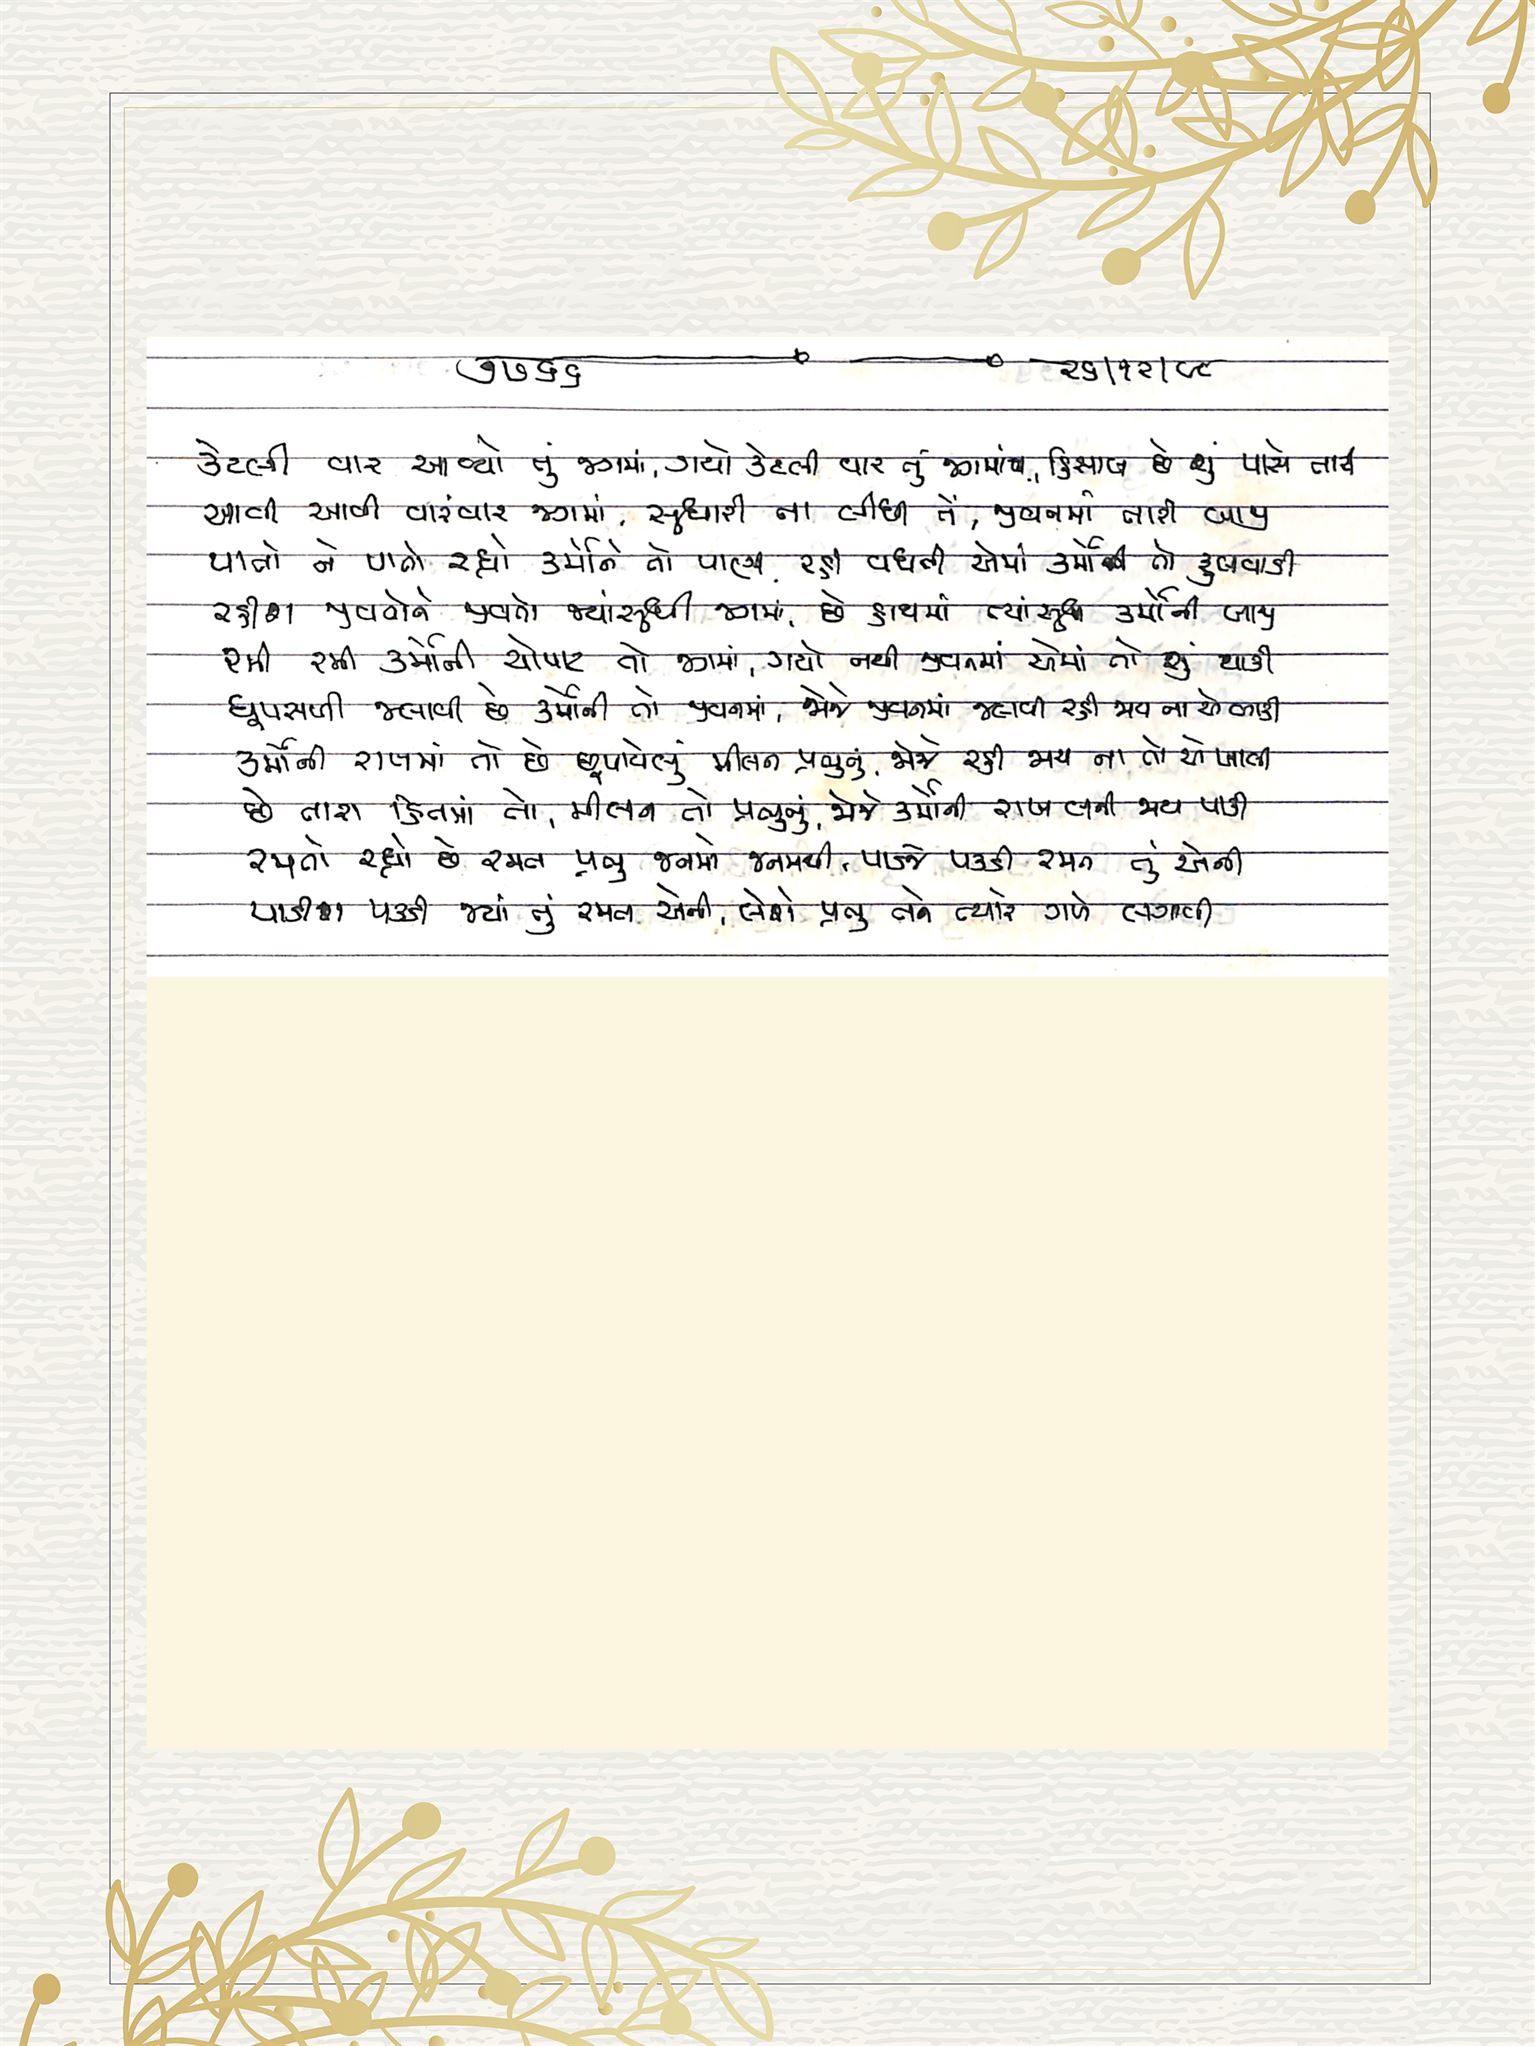 ૭૭૬૬ ૨૬/૧૨/૯૮
કેટલી વાર આવ્યો તું જગમાં, ગયો કેટલી વાર તું જગમાંથી, હિસાબ છે શું પાસે તારી
આવી આવી વારંવાર જગમાં, સુધારી ના લીધી તેં, જીવનમાં તારી બાજી
પીતો ને પાતો રહ્યો કર્મોને તો પાણી, રહી વધતી એમાં કર્મોની તો ફુલવાડી
રહીશ જીવતોને જીવતો જ્યાંસુધી જગમાં, છે હાથમાં ત્યાંસુધી કર્મોની બાજી
રમી રમી કર્મોની ચોપાટ તો જગમાં, ગયો નથી જીવનમાં એમાં તો શું થાકી
ધૂપસળી જલાવી છે કર્મોની તો જીવનમાં, જોજે જીવનમાં જલાવી રહી જાય ના એ બાકી
કર્મોની રાખમાં તો છે છૂપાયેલું મીલન પ્રભુનું, જોજે રહી જાય ના તો એ ખાલી
છે તારા હિતમાં તો, મીલન તો પ્રભુનું, જોજે કર્મોની રાખ બની જાય પાકી
રમતો રહ્યો છે રમત પ્રભુ જનમો જનમથી, પાડજે પકડી રમત તું એની
પાડીશ પકડી જ્યાં તું રમત એની, લેશે પ્રભુ તને ત્યારે ગળે લગાવી